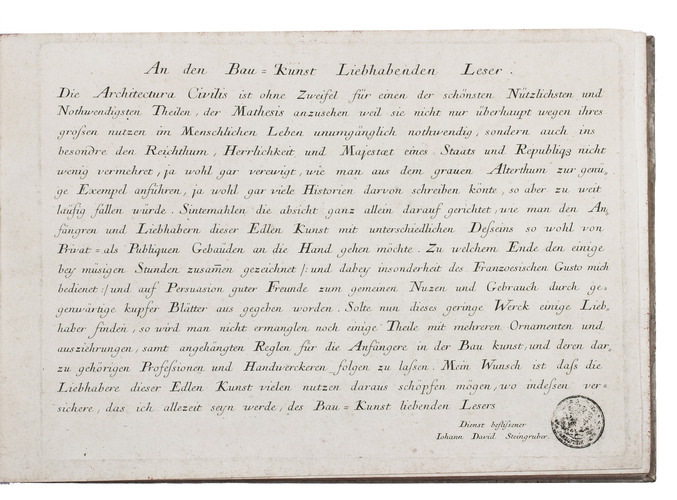 An den Bau = Kunst Liebhabenden Leser .
Die Architectura Civilis ist ohne Zweifel für einen der schönsten Nützlichsten und
Nothwendigsten Theilen , der Mathesis anzusehen weil sie nicht nur überhaupt wegen ihres
grossen nutzen im Menschlichen Leben unumgänglich nothwendig , sondern auch ins
besondre den Reichthum , Herrlichkeit und Majestæt eines Staats und Republiqs nicht
wenig vermehret , ja wohl gar verewigt , wie man aus dem grauen Alterthum zur genü-
ge Exempel anführen , ja wohl gar viele Historien darvon schreiben könte , so aber zu weit
läufig fallen würde . Sintemahlen die absicht ganz allein darauf gerichtet , wie man den An-
fängren und Liebhabern dieser Edlen Kunst mit unterschiedlichen Desseins so wohl von
Privat = als Publiquen Gebaüden an die Hand gehen möchte . Zu welchem Ende den einige
bey müsigen Stunden zusam̄en gezeichnet /: und dabey insonderheit des Franzoesischen Gusto mich
bedienet :/ und auf Persuasion guter Freunde zum gemeinen Nuzen und Gebrauch durch ge-
genwärtige kupfer Blätter aus gegeben worden . Solte nun dieses geringe Werck einige Lieb-
haber finden , so wird man nicht ermanglen noch einige Theile mit mehreren Ornamenten und
ausziehrungen , samt angehängten Reglen für die Anfängere in der Bau kunst , und deren dar-
zu gehörigen Professionen und Handwerckeren folgen zu lassen . Mein Wunsch ist dass die
Liebhabere dieser Edlen Kunst vielen nutzen daraus schöpfen mögen , wo indessen ver-
sichere , das ich allezeit seyn werde , des Bau = Kunst liebenden Lesers
Dienst beflissener
Iohann David Steingruber .